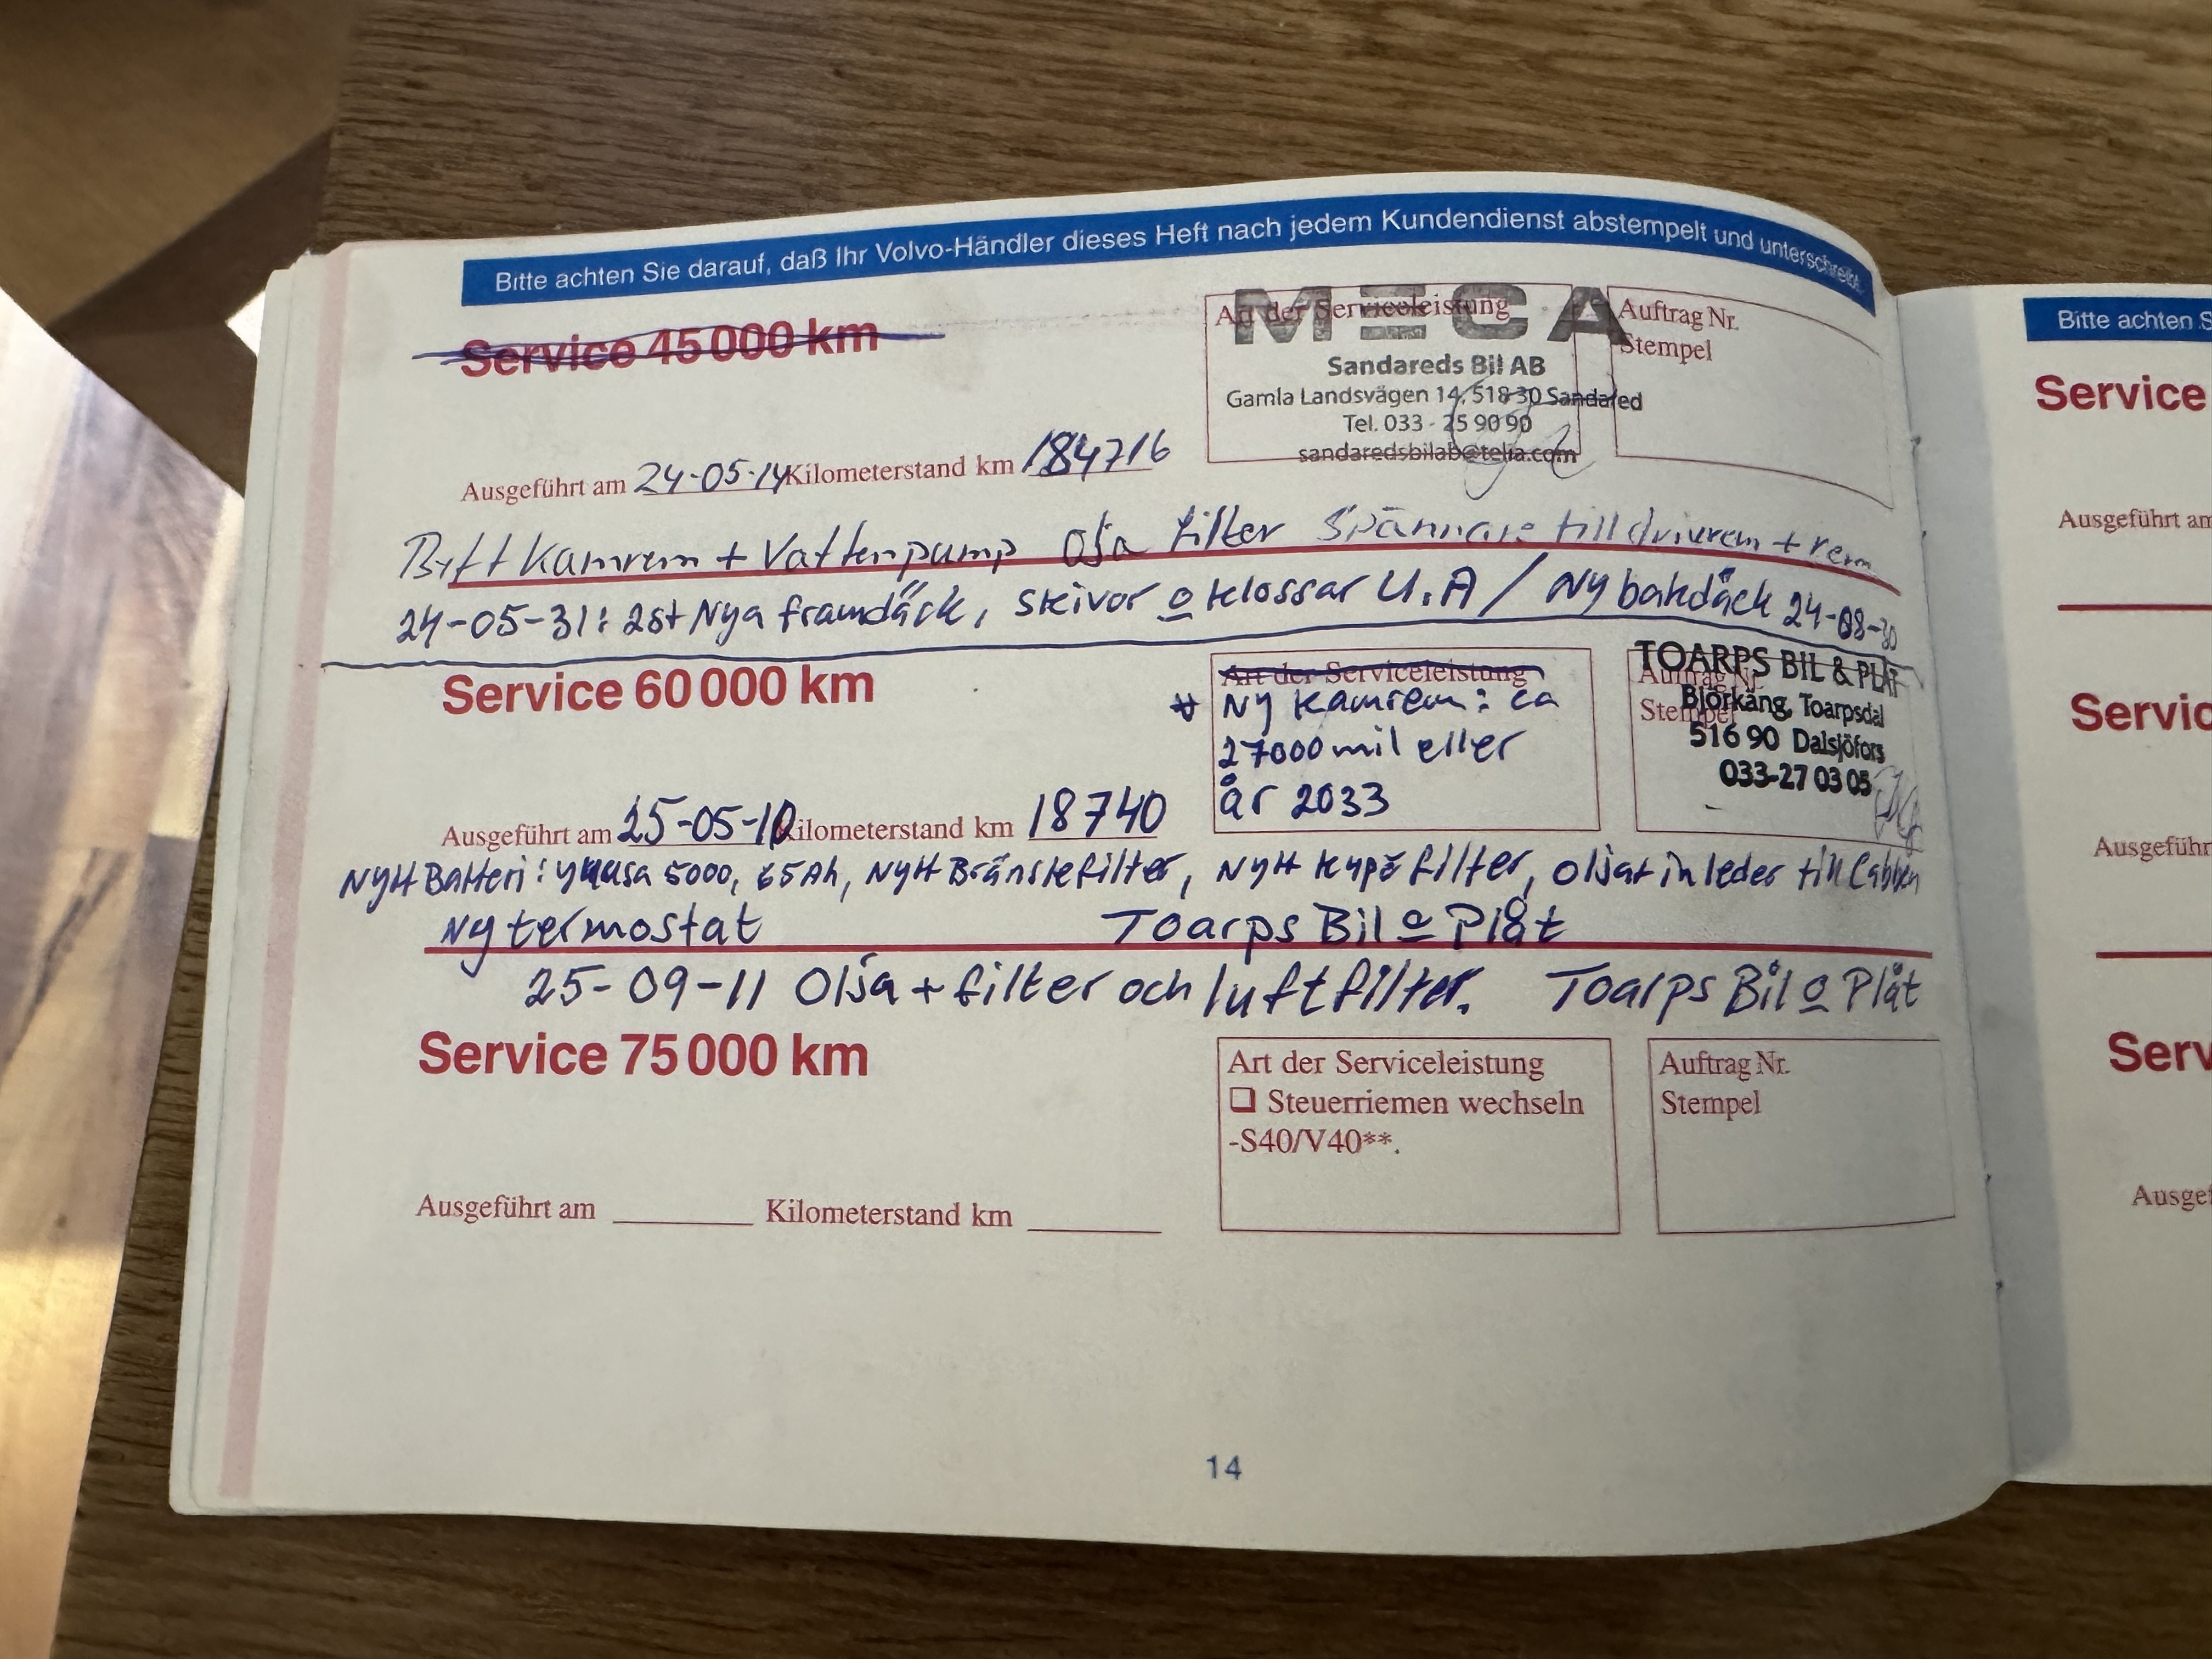 Bitte achten Sie darauf, daß Ihr Volvo-Händler dieses Heft nach jedem Kundendienst abstempelt und unterschreibt.
Service 45 000 km
Art der Serviceleistung
MECA
Sandareds Bil AB
Gamla Landsvägen 14, 518 30 Sandared
Tel. 033 - 25 90 90
sandaredsbilab@telia.com
Auftrag Nr.
Stempel
Ausgeführt am 24-05-14 Kilometerstand km 184716
Bytt Kamrem + Vattenpump Olja Filter Spännare till drivrem + rem
24-05-31: 2st Nya framdäck, skivor o klossar U.A / Ny bakdäck 24-08-30
Service 60 000 km
Art der Serviceleistung
* Ny kamrem: ca
27000 mil eller
år 2033
Auftrag Nr.
Stempel
TOARPS BIL & PLÅT
Björkäng, Toarpsdal
516 90 Dalsjöfors
033-27 03 05
Ausgeführt am 25-05-10 Kilometerstand km 18740
Nytt Batteri: yuasa 5000, 65Ah, Nytt Bränslefilter, Nytt kupéfilter, Oljat in leder till Cabben
Ny termostat Toarps Bil o Plåt
25-09-11 Olja + filter och luftfilter. Toarps Bil o Plåt
Service 75 000 km
Art der Serviceleistung
❏ Steuerriemen wechseln
-S40/V40**.
Auftrag Nr.
Stempel
Ausgeführt am Kilometerstand km
14
Bitte achten S
Service
Ausgeführt am
Servic
Ausgeführ
Serv
Ausgef